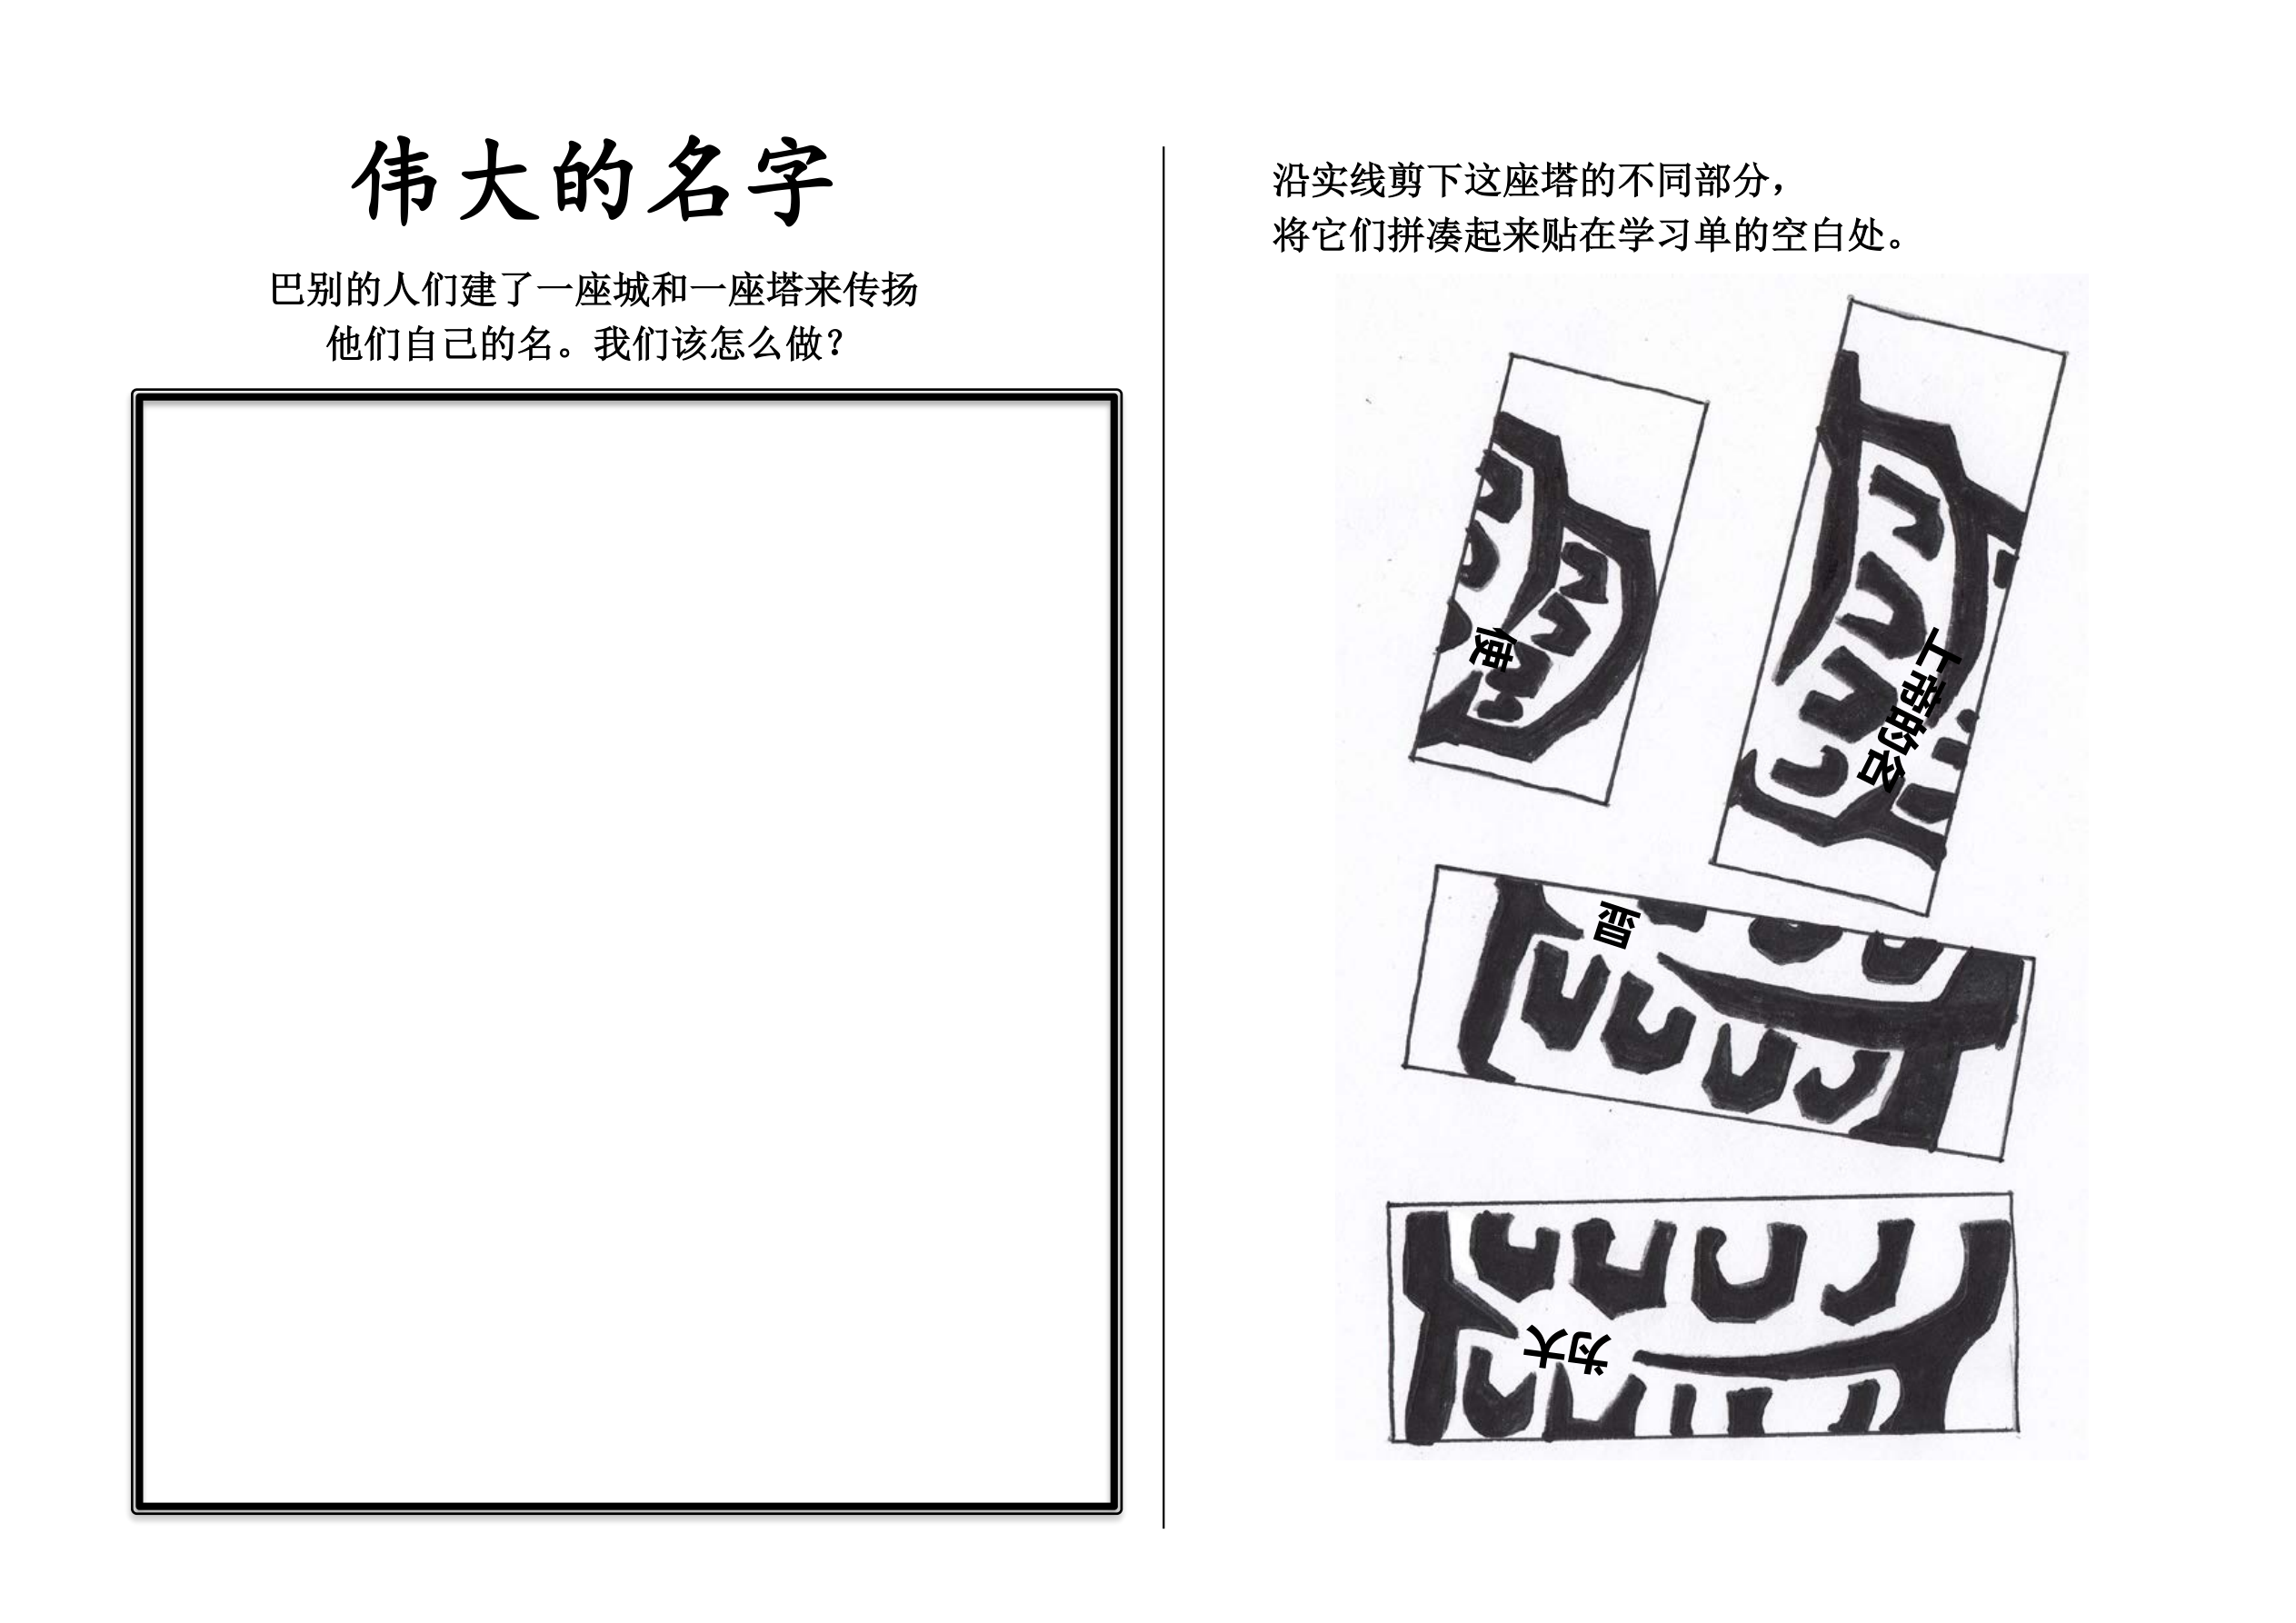 伟大的名字
巴别的人们建了一座城和一座塔来传扬
他们自己的名。我们该怎么做？
沿实线剪下这座塔的不同部分，
将它们拼凑起来贴在学习单的空白处。
使
上帝的名
普
为大